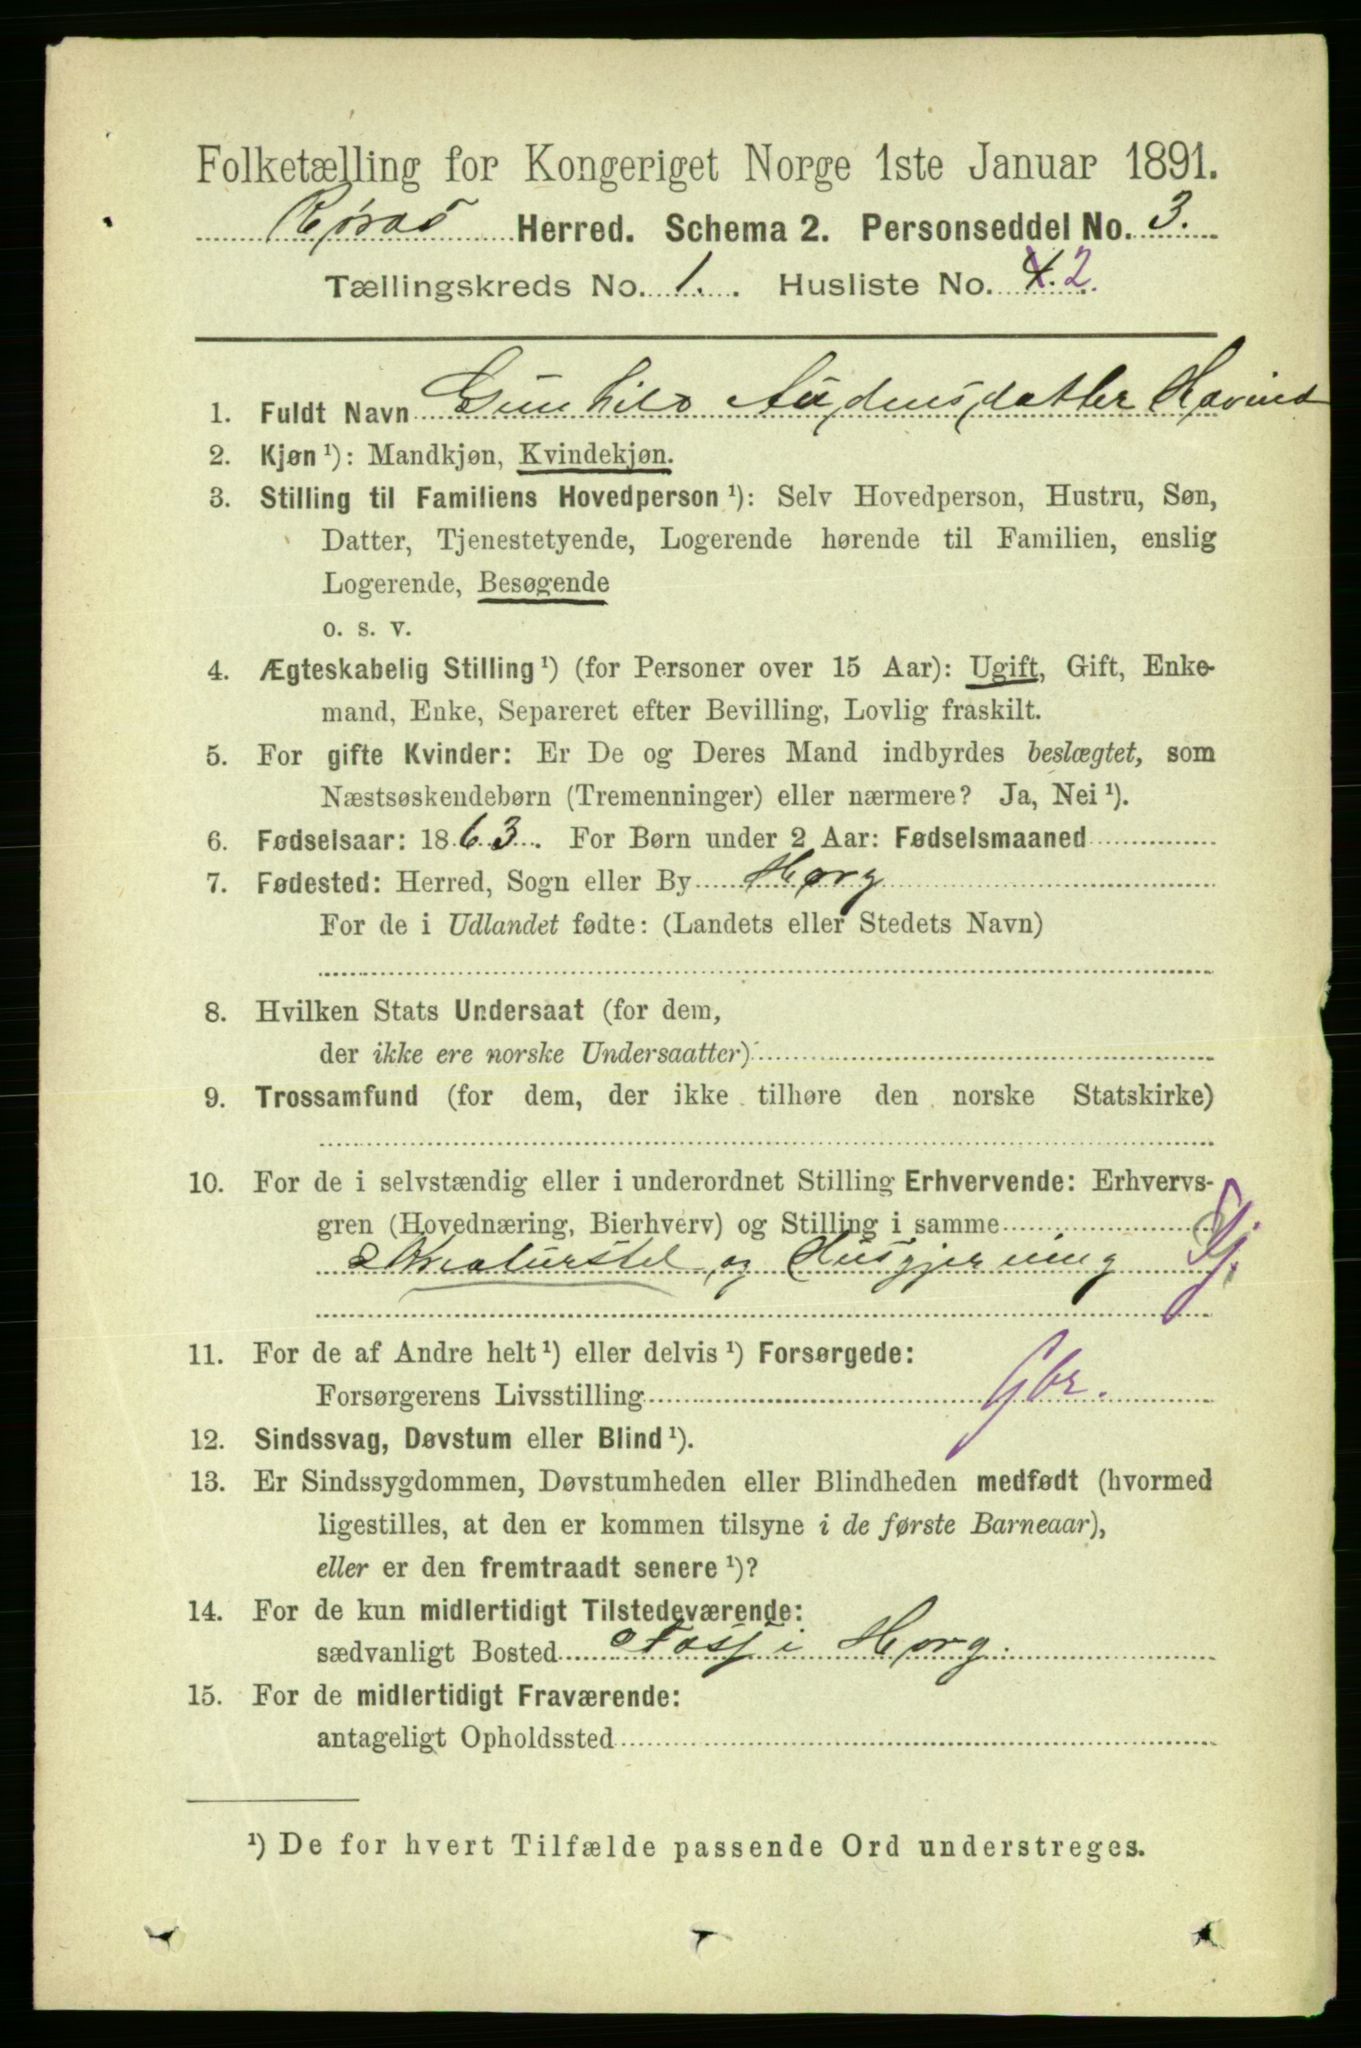 Folketælling for Kongeriget Norge 1ste Januar 1891.
Røros Herred. Schema 2. Personseddel No. 3.
Tællingskreds No. 1. Husliste No. 4. 2.
1. Fuldt Navn Gunhild Audensdatter Havind
2. Kjøn ¹): Mandkjøn, Kvindekjøn.
3. Stilling til Familiens Hovedperson ¹): Selv Hovedperson, Hustru, Søn,
Datter, Tjenestetyende, Logerende hørende til Familien, enslig
Logerende, Besøgende
o. s. v.
4. Ægteskabelig Stilling ¹) (for Personer over 15 Aar): Ugift, Gift, Enke-
mand, Enke, Separeret efter Bevilling, Lovlig fraskilt.
5. For gifte Kvinder: Er De og Deres Mand indbyrdes beslægtet, som
Næstsøskendebørn (Tremenninger) eller nærmere? Ja, Nei ¹).
6. Fødselsaar: 1863. For Børn under 2 Aar: Fødselsmaaned
7. Fødested: Herred, Sogn eller By Horg
For de i Udlandet fødte: (Landets eller Stedets Navn)
8. Hvilken Stats Undersaat (for dem,
der ikke ere norske Undersaatter)
9. Trossamfund (for dem, der ikke tilhøre den norske Statskirke)
10. For de i selvstændig eller i underordnet Stilling Erhvervende: Erhvervs-
gren (Hovednæring, Bierhverv) og Stilling i samme
Kreaturstel og Husgjerning Tj.
11. For de af Andre helt ¹) eller delvis ¹) Forsørgede:
Forsørgerens Livsstilling Gbr.
12. Sindssvag, Døvstum eller Blind ¹).
13. Er Sindssygdommen, Døvstumheden eller Blindheden medfødt (hvormed
ligestilles, at den er kommen tilsyne i de første Barneaar),
eller er den fremtraadt senere ¹)?
14. For de kun midlertidigt Tilstedeværende:
sædvanligt Bosted Foss i Horg.
15. For de midlertidigt Fraværende:
antageligt Opholdssted
¹) De for hvert Tilfælde passende Ord understreges.